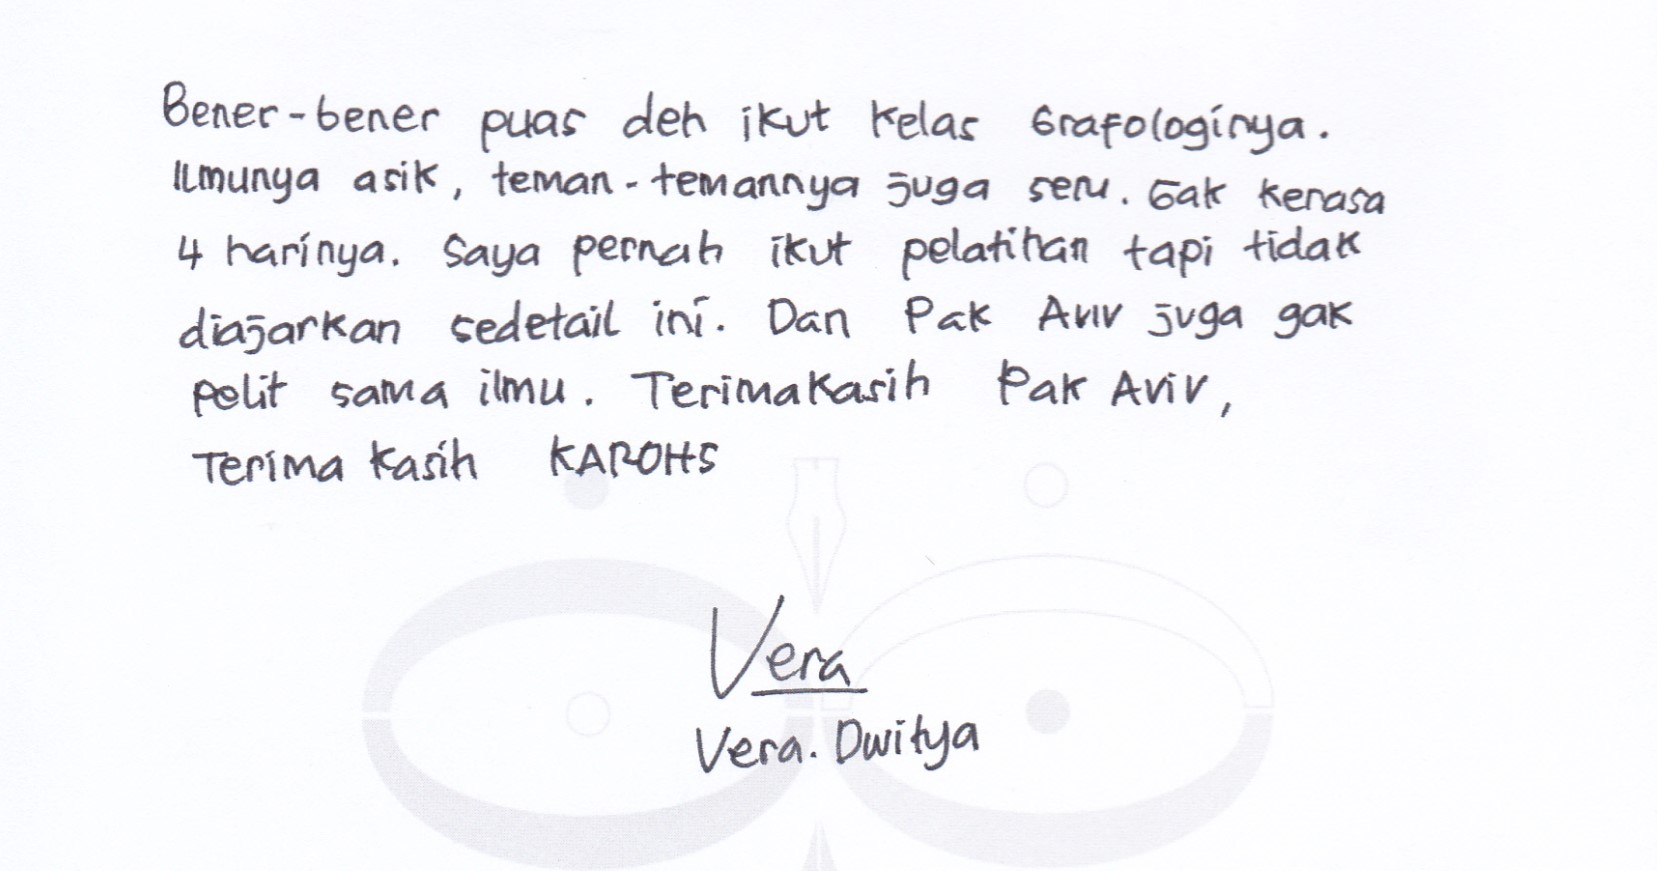 Bener-bener puas deh ikut kelas Grafologinya.
Ilmunya asik, teman-temannya juga seru. Gak kerasa
4 harinya. Saya pernah ikut pelatihan tapi tidak
diajarkan sedetail ini. Dan Pak Aviv juga gak
pelit sama ilmu. Terimakasih Pak Aviv,
Terima kasih KAROHS
Vera
Vera. Dwitya